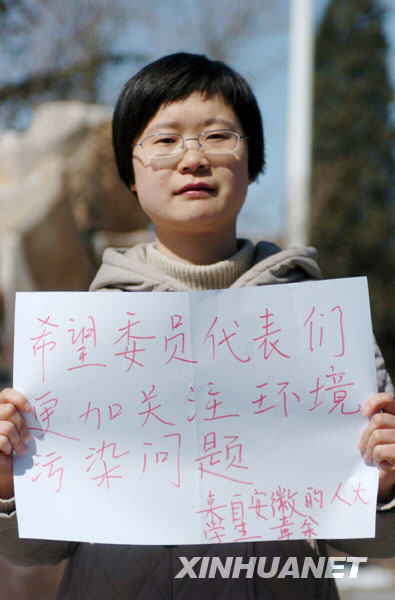 希望委员代表们
更加关注环境
污染问题
来自安徽的人大
学生 章余
XINHUANET